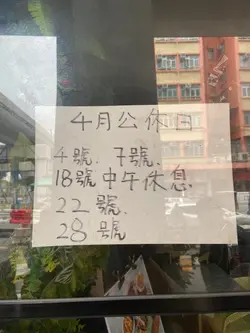 4月公休日
4號、7號、
18號中午休息
22號、
28號